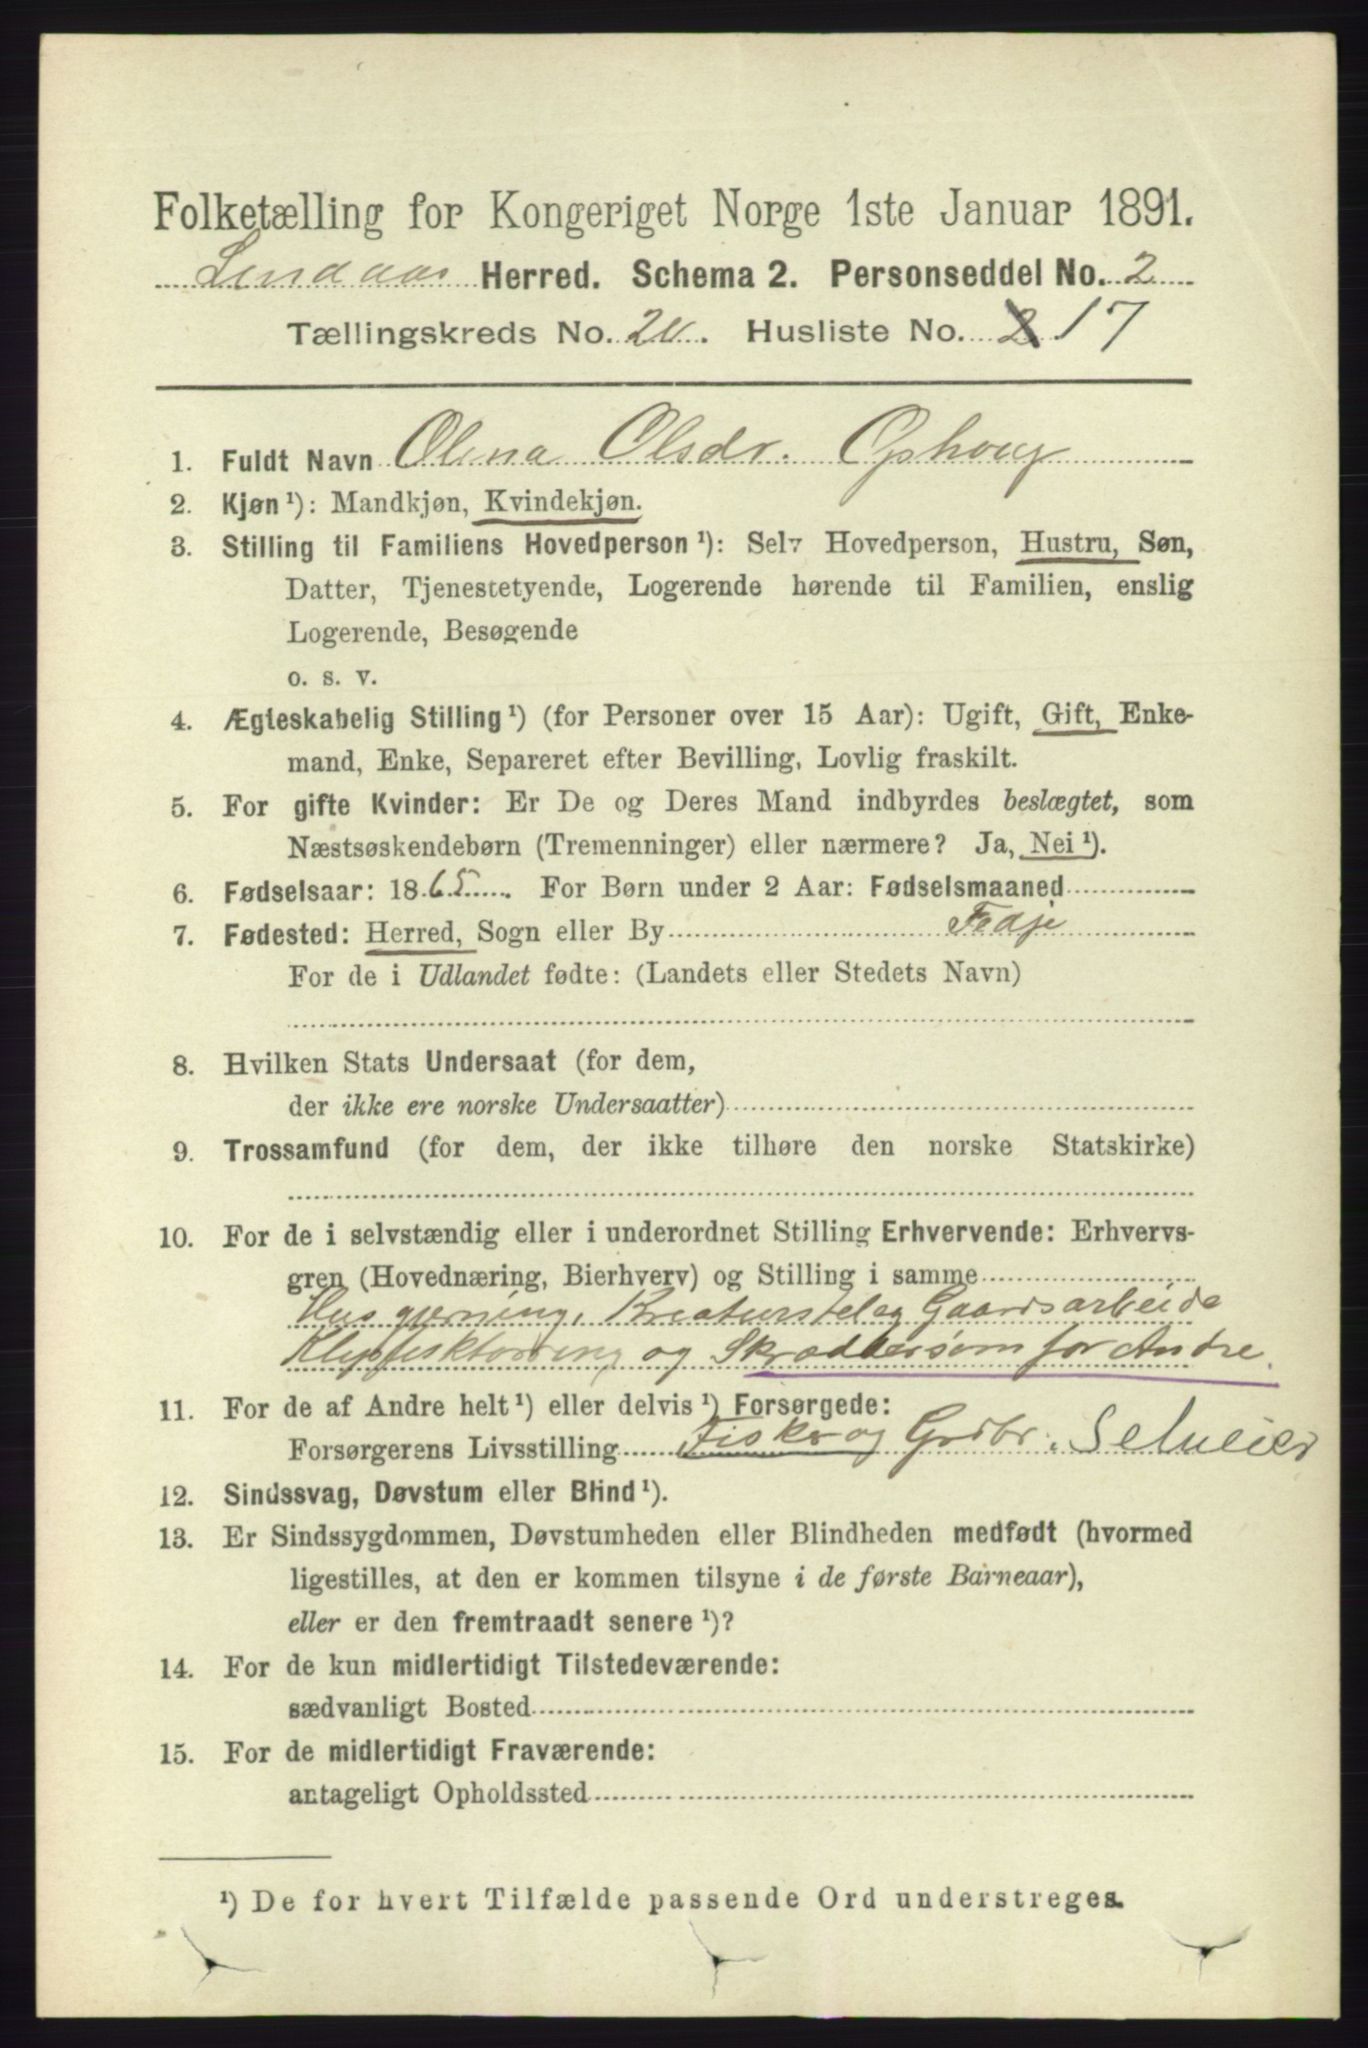 Folketælling for Kongeriget Norge 1ste Januar 1891.
Lindaas Herred. Schema 2. Personseddel No. 2
Tællingskreds No. Husliste No. 2 17
1. Fuldt Navn Olina Olsdr. Ophoug
2. Kjøn ¹): Mandkjøn, Kvindekjøn.
3. Stilling til Familiens Hovedperson ¹): Selv Hovedperson, Hustru, Søn,
Datter, Tjenestetyende, Logerende hørende til Familien, enslig
Logerende, Besøgende
o. s. v.
4. Ægteskabelig Stilling ¹) (for Personer over 15 Aar): Ugift, Gift, Enke-
mand, Enke, Separeret efter Bevilling, Lovlig fraskilt.
5. For gifte Kvinder: Er De og Deres Mand indbyrdes beslægtet, som
Næstsøskendebørn (Tremenninger) eller nærmere? Ja, Nei ¹).
6. Fødselsaar: 1865. For Børn under 2 Aar: Fødselsmaaned
7. Fødested: Herred, Sogn eller By Fedje
For de i Udlandet fødte: (Landets eller Stedets Navn)
8. Hvilken Stats Undersaat (for dem,
der ikke ere norske Undersaatter)
9. Trossamfund (for dem, der ikke tilhøre den norske Statskirke)
10. For de i selvstændig eller i underordnet Stilling Erhvervende: Erhvervs-
gren (Hovednæring, Bierhverv) og Stilling i samme
Husgjerning, Kreaturstel og Gaardsarbeide
Klipfisktörring og Skræddersøm for Andre.
11. For de af Andre helt ¹) eller delvis ¹) Forsørgede:
Forsørgerens Livsstilling Fisker og Grdbr. Selveier
12. Sindssvag, Døvstum eller Blind ¹).
13. Er Sindssygdommen, Døvstumheden eller Blindheden medfødt (hvormed
ligestilles, at den er kommen tilsyne i de første Barneaar),
eller er den fremtraadt senere ¹)?
14. For de kun midlertidigt Tilstedeværende:
sædvanligt Bosted
15. For de midlertidigt Fraværende:
antageligt Opholdssted
¹) De for hvert Tilfælde passende Ord understreges.